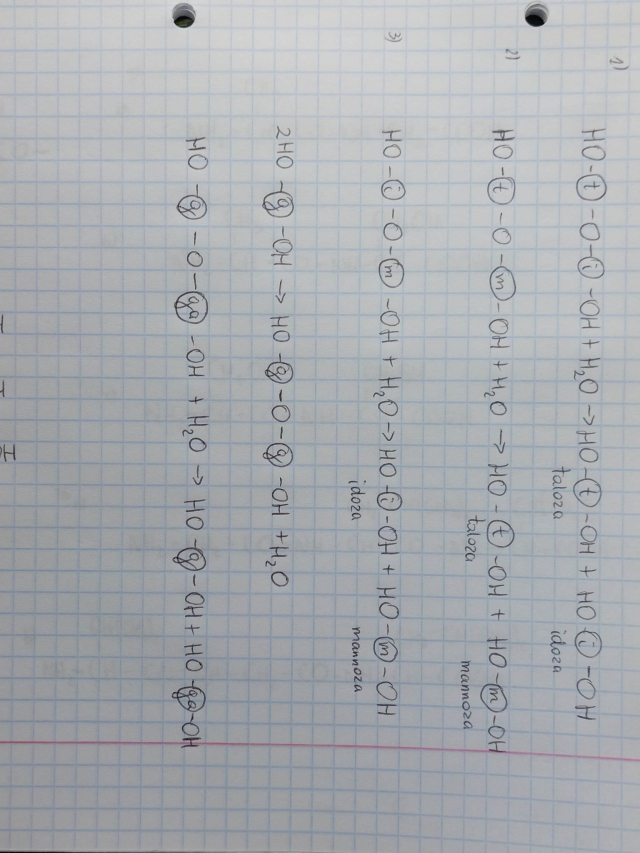 1) HO-(t)-O-(i)-OH + H₂O → HO-(t)-OH + HO-(i)-OH
taloza idoza
2) HO-(t)-O-(m)-OH + H₂O → HO-(t)-OH + HO-(m)-OH
taloza mannoza
3) HO-(i)-O-(m)-OH + H₂O → HO-(i)-OH + HO-(m)-OH
idoza mannoza
2HO-(g)-OH → HO-(g)-O-(g)-OH + H₂O
HO-(g)-O-(ga)-OH + H₂O → HO-(g)-OH + HO-(ga)-OH